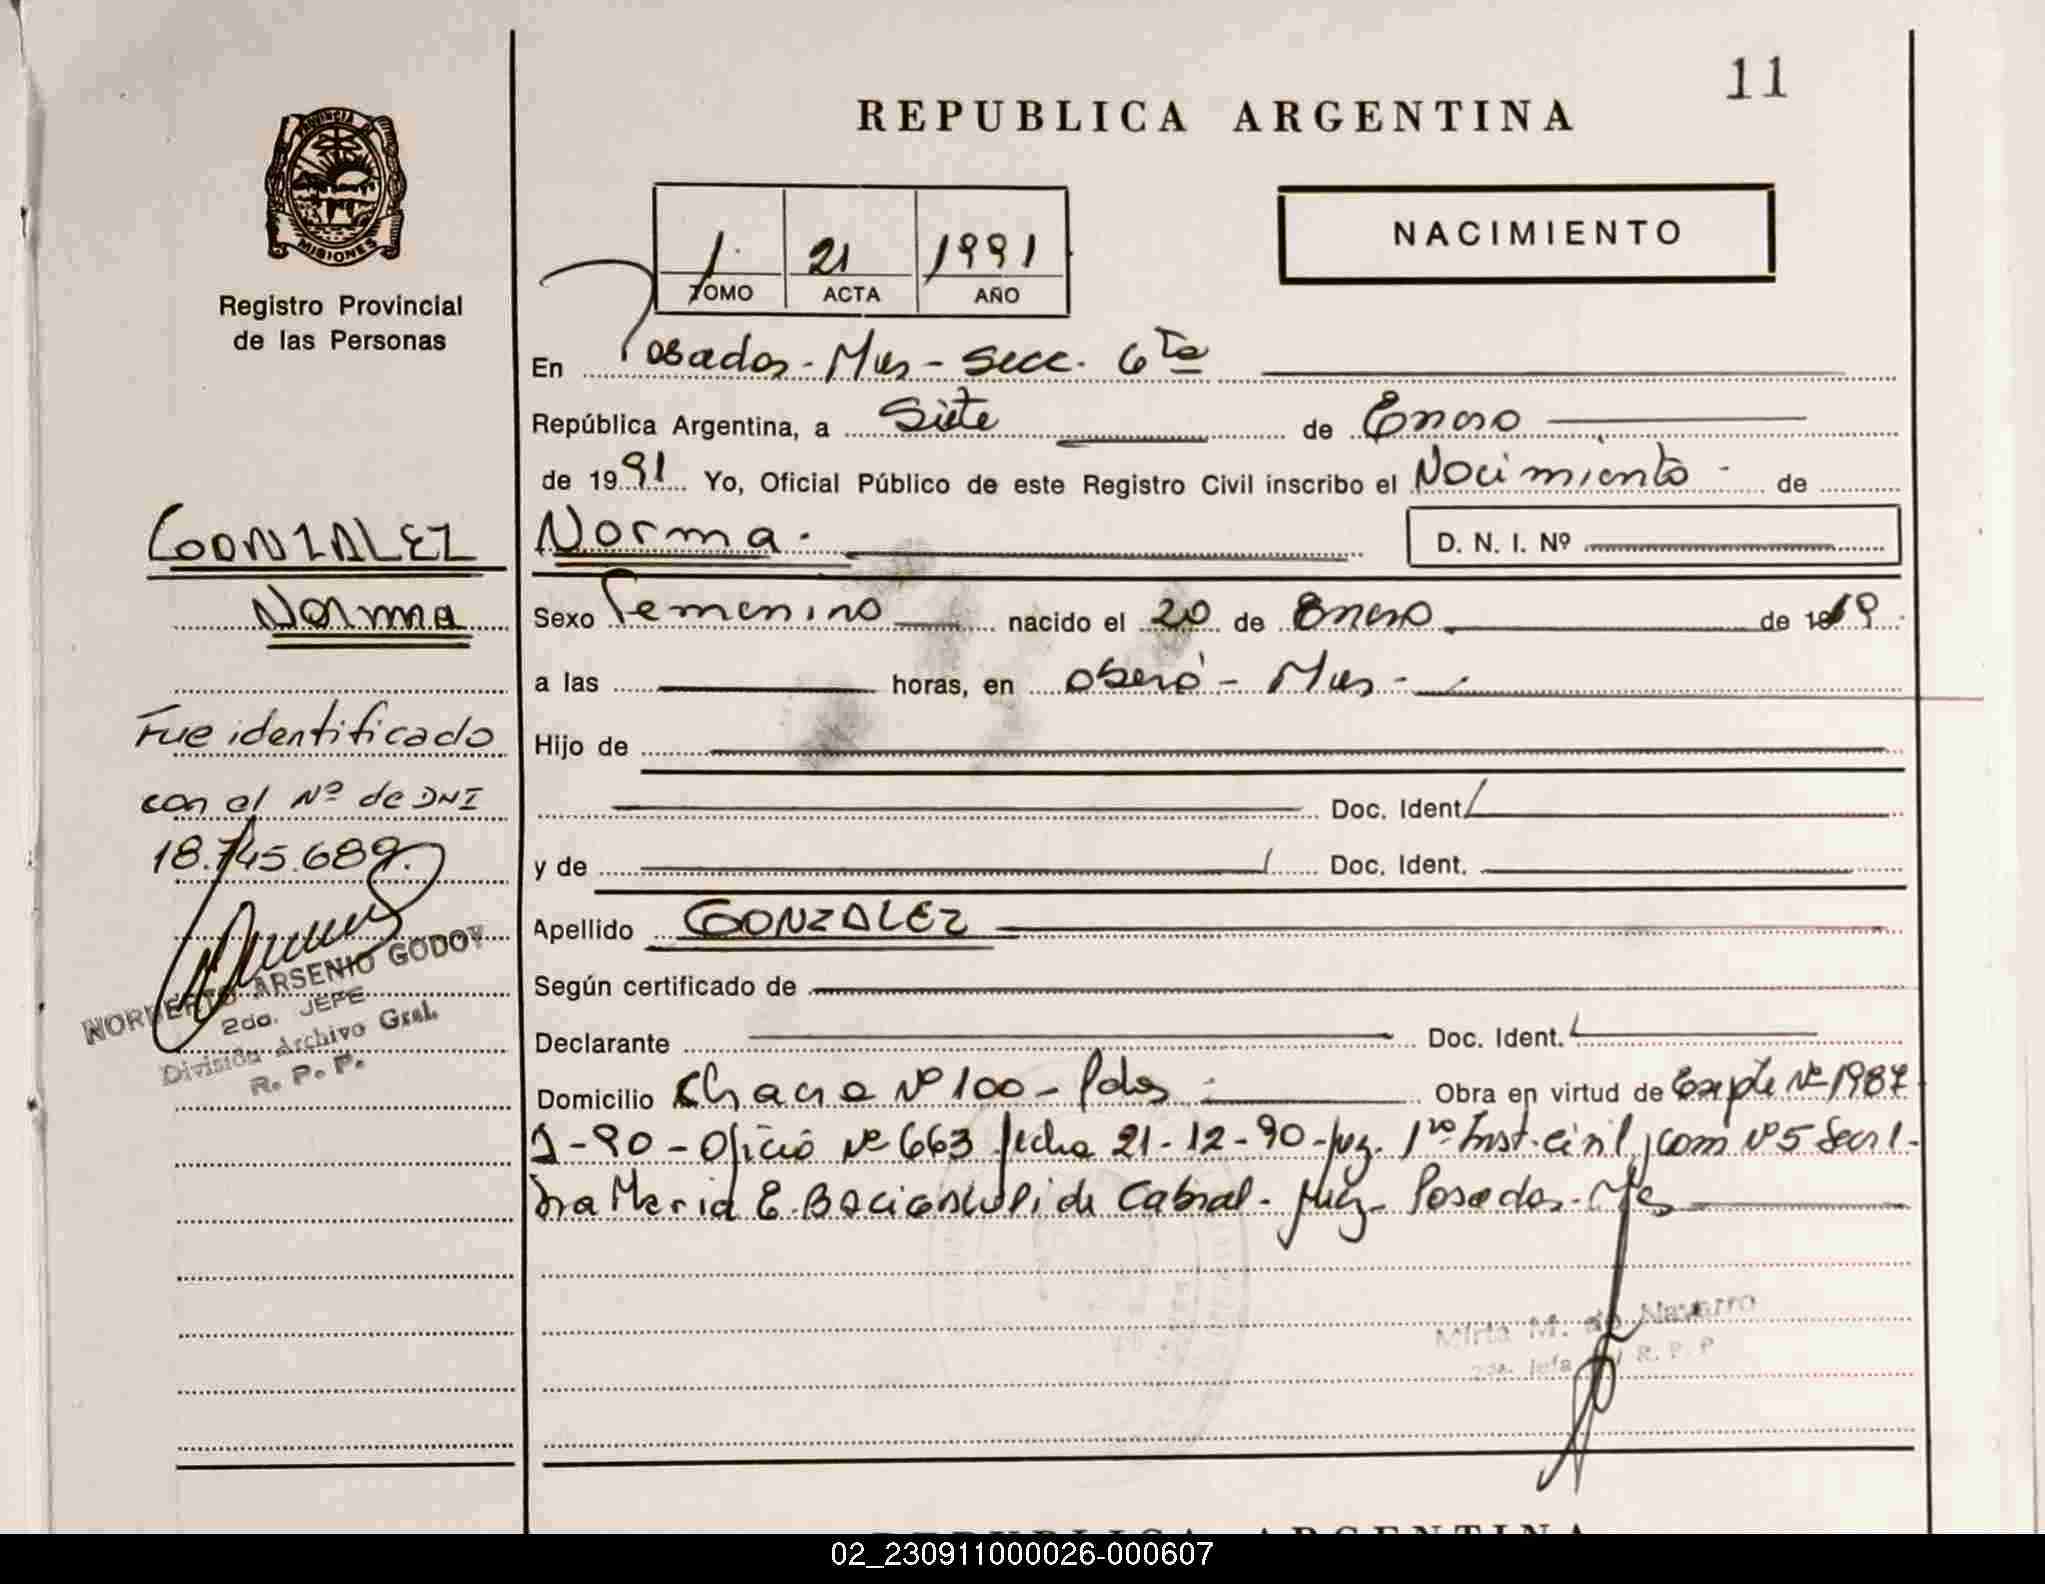 11
REPUBLICA ARGENTINA
PROVINCIA DE
MISIONES
Registro Provincial
de las Personas
1 21 1991
TOMO ACTA AÑO
NACIMIENTO
En Posadas - Mns - Secc. 6ta
República Argentina, a Siete de Enero
de 1991 Yo, Oficial Público de este Registro Civil inscribo el Nacimiento - de
Norma.
D. N. I. Nº
Sexo Femenino nacido el 20 de Enero de
a las horas, en Oberá - Mns -
Hijo de
Doc. Ident.
y de Doc. Ident.
Apellido GONZALEZ
Según certificado de
Declarante Doc. Ident.
Domicilio Chacra Nº 100 - Pdas Obra en virtud de Expte Nº 1987
1-90 - Oficio Nº 663 fecha 21-12-90 - Juz. 1ro Inst. civil, com Nº 5 Secr 1 -
Dra Maria E. de Cabral - Juez - Posadas - Mns
Mirta M. de Navarro
R. P. P
GONZALEZ
Norma
Fue identificado
con el Nº de DNI
18.745.689.
NORBERTO ARSENIO GODOY
2do. JEFE
División Archivo Gral.
R. P. P.
REPUBLICA ARGENTINA
02_230911000026-000607